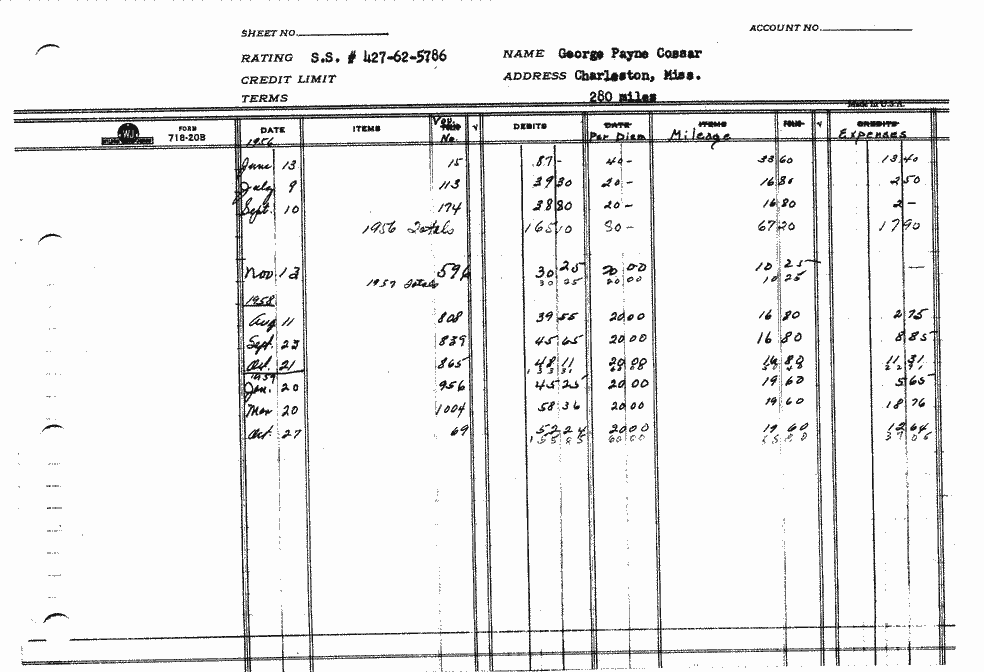 SHEET NO. ACCOUNT NO.
RATING S.S. # 427-62-5786 NAME George Payne Cossar
CREDIT LIMIT ADDRESS Charleston, Miss.
TERMS 280 miles
MADE IN U.S.A.
FORM 718-20B DATE ITEMS Vou. No. √ DEBITS DATE Per Diem ITEMS Mileage FOLIO √ CREDITS Expenses
1956
June 13 15 87 - 40 - 33 60 13 40
July 9 113 39 30 20 - 16 80 2 50
Sept. 10 174 38 80 20 - 16 80 2 -
1956 Totals 165 10 80 - 67 20 17 90
Nov 13 596 30 25 20 00 10 25 —
1957 Totals 30 25 20 00 10 25
1958
Aug 11 808 39 55 20 00 16 80 2 75
Sept. 23 839 45 65 20 00 16 80 8 85
Oct. 21 865 48 11 20 00 16 80 11 31
133 31 60 00 50 40 22 91
1959
Jan. 20 956 45 25 20 00 19 60 5 65
Mar 20 1004 58 36 20 00 19 60 18 76
Oct. 27 69 52 24 20 00 19 60 12 64
155 85 60 00 58 80 37 05